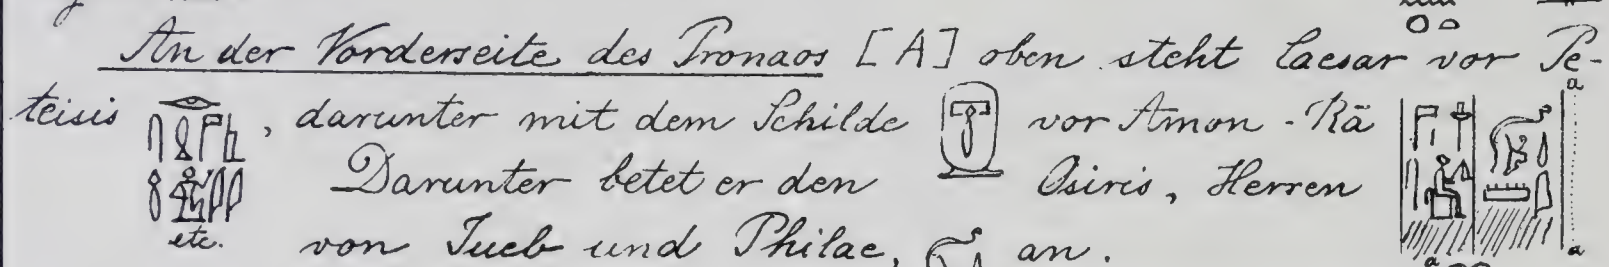 An der Vorderseite des Pronaos [A] oben steht Caesar vor Pe-
teisis , darunter mit dem Schilde vor Amon-Rā
Darunter betet er den Osiris, Herren
etc. von Tueb und Philae, an.
a
a
a